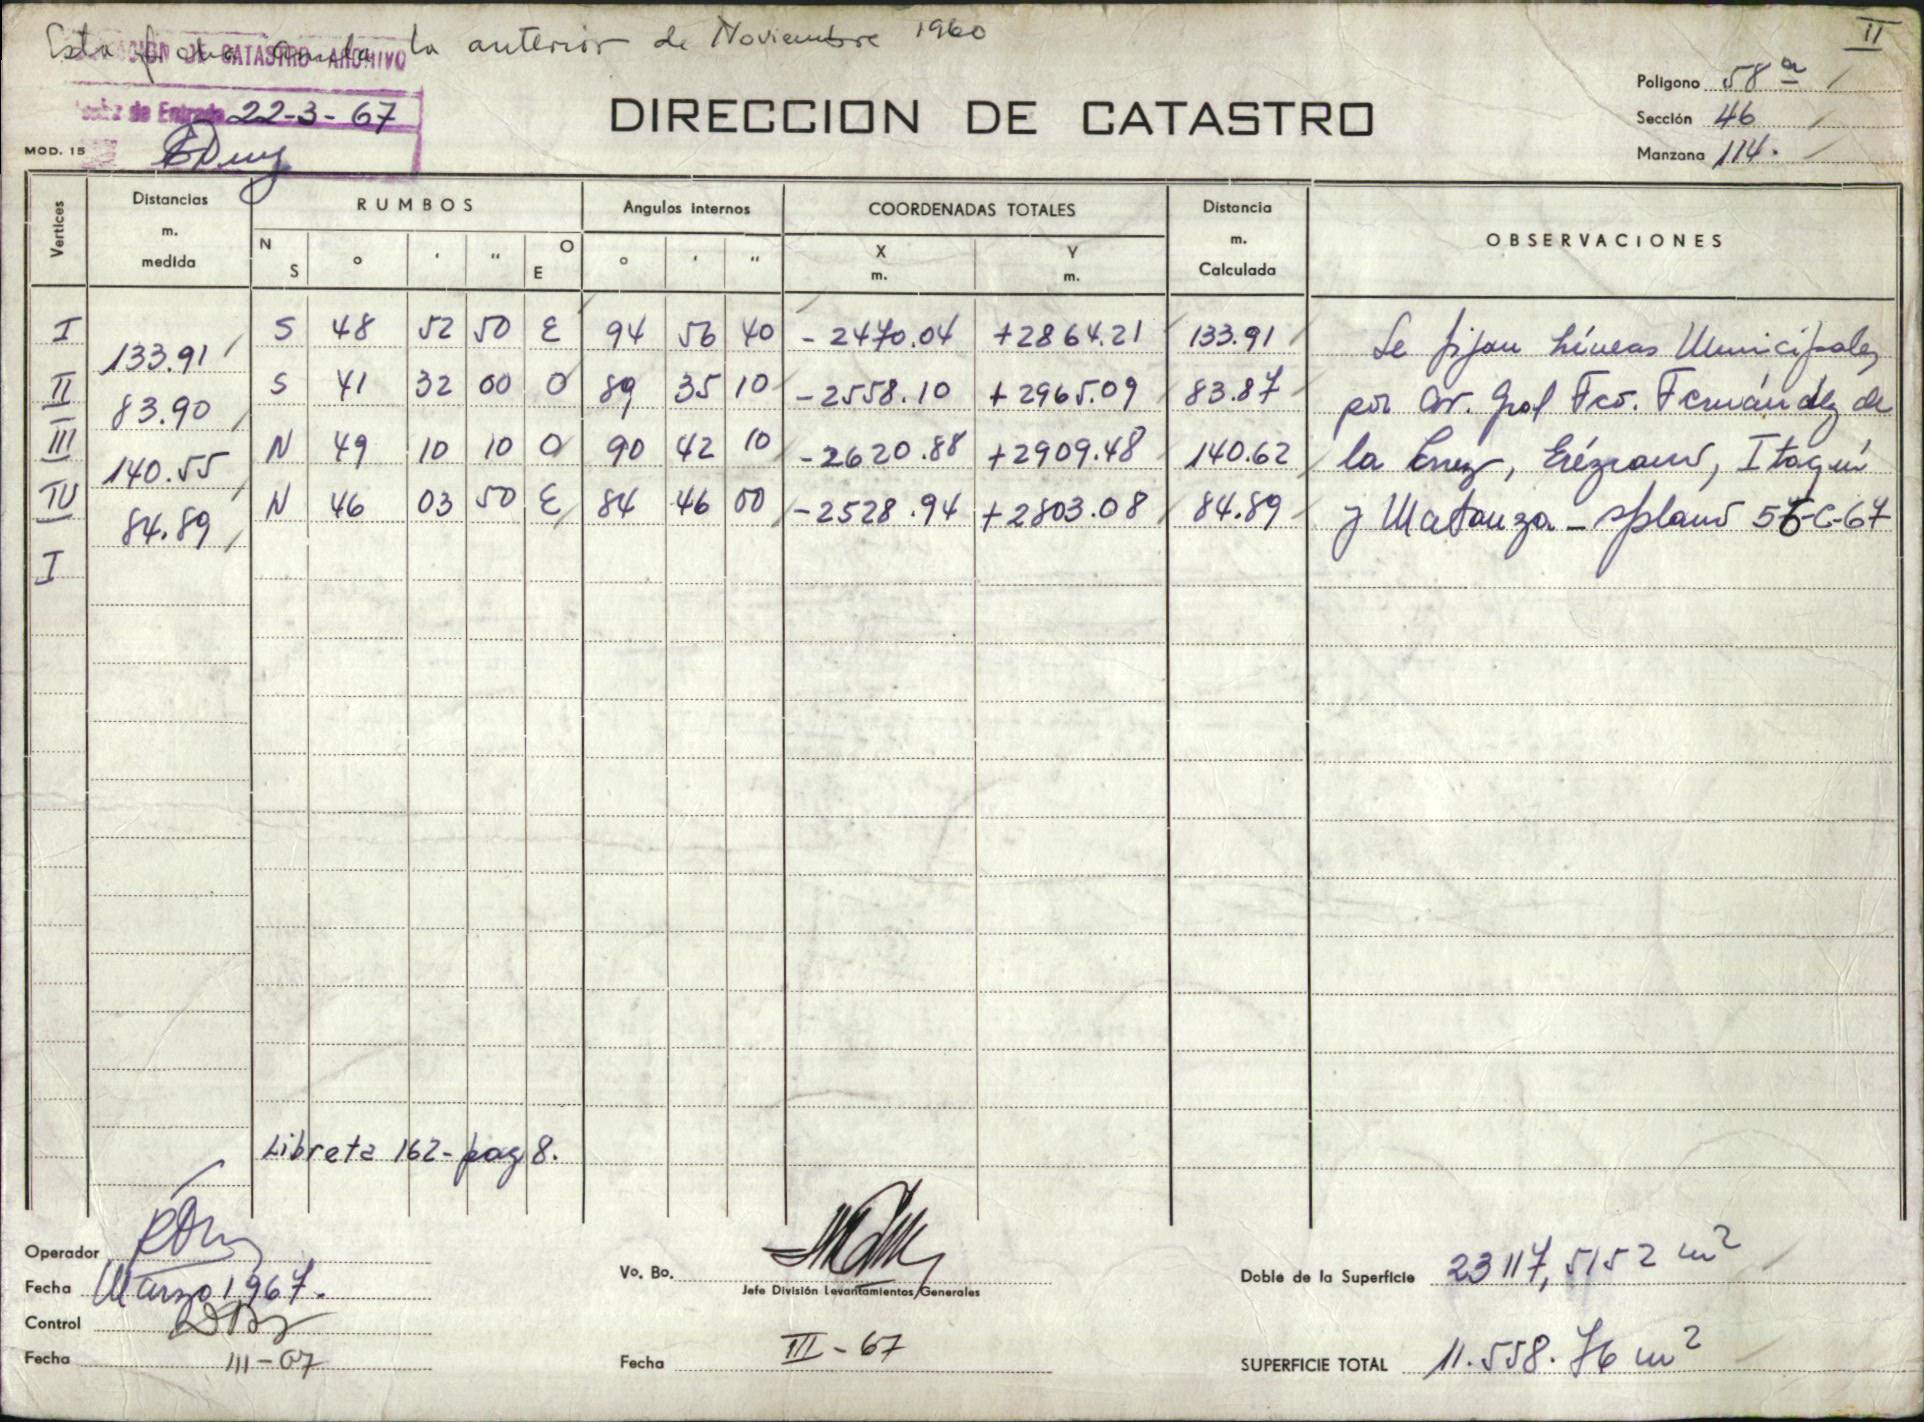 Esta ficha anula la anterior de Noviembre 1960
II
CATASTRO ARCHIVO
de Entrada 22-3-67
MOD. 15
DIRECCION DE CATASTRO
Poligono 58ª
Sección 46
Manzana 114.
Vertices Distancias m. medida RUMBOS Angulos internos COORDENADAS TOTALES Distancia m. Calculada OBSERVACIONES
N S ° ' " O E ° ' " X m. Y m.
I S 48 52 50 E 94 56 40 -2470.04 +2864.21 133.91 Se fijan Líneas Municipales
133.91
II S 41 32 00 O 89 35 10 -2558.10 +2965.09 83.87 por Av. Gral Fco. Fernández de
83.90
III N 49 10 10 O 90 42 10 -2620.88 +2909.48 140.62 la Cruz, Erézcano, Itaquí
140.55
IV N 46 03 50 E 84 46 00 -2528.94 +2803.08 84.89 y Matanza - s/plano -C-67
84.89
I
Libreta 162-pag 8.
Operador
Fecha Marzo 1967.
Control
Fecha III-67
Vo. Bo.
Jefe División Levantamientos Generales
Fecha III-67
Doble de la Superficie 23117,5152 m²
SUPERFICIE TOTAL 11.558.76 m²